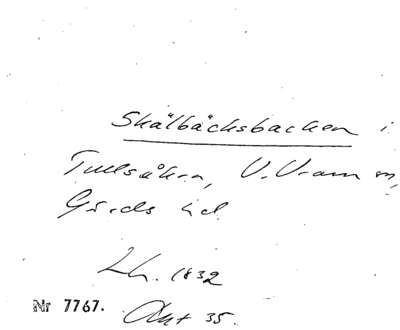 Skälbäcksbacken i
Tullsåkra, V. Vram sn,
Gärds hd.
Lh. 1832
Nr 7767. Akt 35.